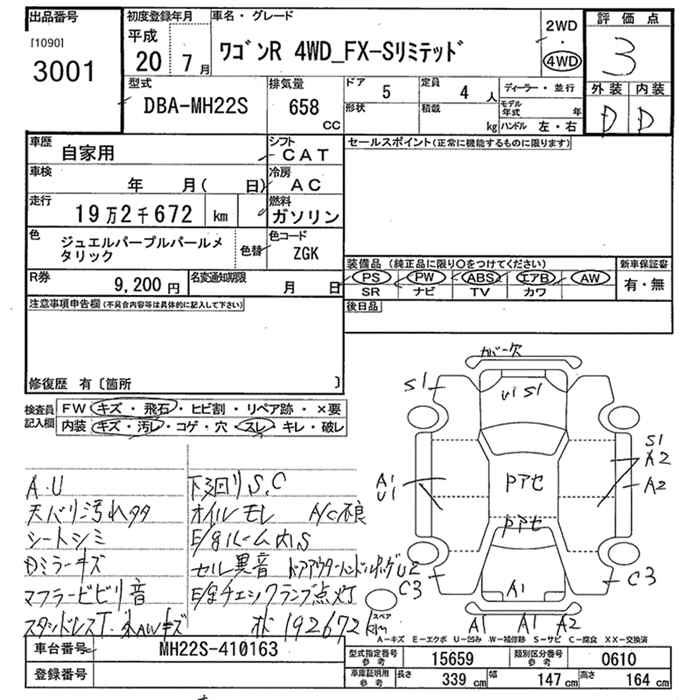 出品番号
[1090]
3001
初度登録年月
平成
20 7月
車名・グレード
ワゴンR 4WD_FX-Sリミテッド
2WD
・
4WD
評価点
3
外装 内装
D D
型式
DBA-MH22S
排気量
658
CC
ドア
5
定員
4 人
形状
積載
kg
ディーラー・並行
モデル年式 年
ハンドル 左・右
車歴
自家用
シフト
CAT
車検
年 月( 日)
冷房
AC
走行
19万2千672 km
燃料
ガソリン
色
ジュエルパープルパールメタリック
色替
色コード
ZGK
R券
9,200 円
名変通知期限
月 日
セールスポイント(正常に機能するものに限ります)
装備品 (純正品に限り○をつけてください)
PS PW ABS エアB AW
SR ナビ TV カワ
新車保証書
有・無
後日品
注意事項申告欄(不具合内容等は具体的に記入して下さい)
修復歴 有〔箇所 〕
検査員
記入欄
FW キズ・飛石・ヒビ割・リペア跡・×要
内装 キズ・汚レ・コゲ・穴・スレ・キレ・破レ
A.U
天バリ汚れタタ
シートシミ
Dミラーキズ
マフラービビリ音
スタンドレスT.
AWキズ
下廻りS.C
オイルモレ A/C不良
E/gルーム内S
セル異音
E/gチェックランプ点灯
192672km
カバー欠
S1
U1 S1
A1
U1
Pアセ
Pアセ
S1
A2
A2
C3
A1
C3
スペア
A1 A1 A2
A−キズ E−エクボ U−凹み W−補修跡 S−サビ C−腐食 XX−交換済
車台番号
MH22S-410163
登録番号
型式指定番号
参考
15659
類別区分番号
参考
0610
車庫証明用
参考
長さ
339 cm
幅
147 cm
高さ
164 cm